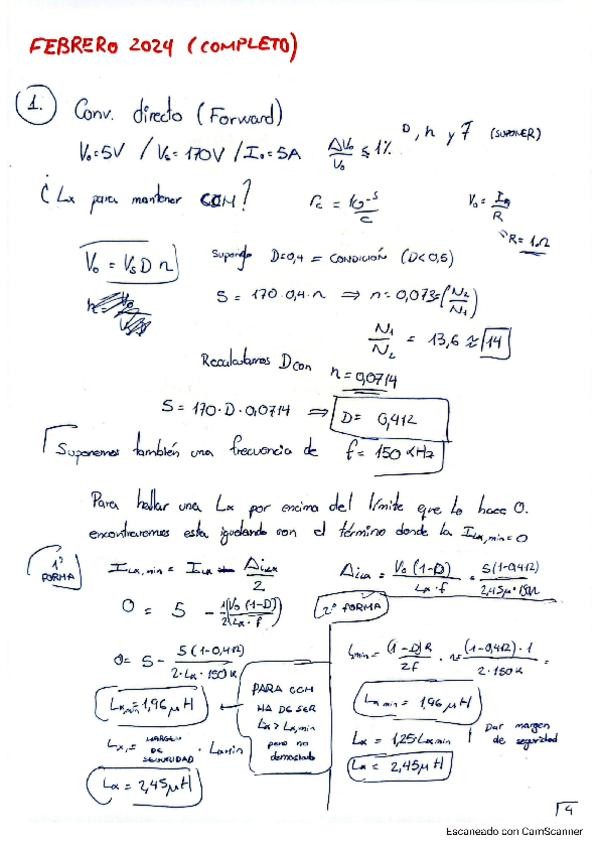 FEBRERO 2024 (COMPLETO)
1. Conv. directo (Forward)
V₀=5V / Vs=170V / I₀=5A ΔV₀/V₀ ≤ 1% D, n y f (SUPONER)
¿Lx para mantener CCM? rc = 10⁻⁵/C V₀ = I₀/R
R=1Ω
V₀ = Vs D n Supongo D=0,4 = CONDICIÓN (D<0,5)
5 = 170·0,4·n ⇒ n=0,073=(N₂/N₁)
N₁/N₂ = 13,6 ≈ 14
Recalculamos D con n=0,0714
5=170·D·0,0714 ⇒ D= 0,412
Suponemos también una frecuencia de f=150 kHz
Para hallar una Lx por encima del límite que lo hace 0.
encontraremos esta igualando con el término donde la ILx,min=0
1ª FORMA
ILx,min = ILx - ΔiLx/2
ΔiLx = V₀(1-D)/Lx·f = 5(1-0,412)/2,45μ·150k
0 = 5 - 1/2 (V₀(1-D)/Lx·f)
2ª FORMA
0= 5 - 5(1-0,412)/2·Lx·150k
Lmin = (1-D)R/2f = (1-0,412)·1/2·150k =
Lx,min=1,96μH
PARA CCM
HA DE SER
Lx>Lx,min
pero no
demasiado
Lx min = 1,96μH
Lx = MARGEN DE SEGURIDAD · Lx min
Lx = 1,25·Lx min Dar margen de seguridad
Lx = 2,45μH
Lx = 2,45μH
4
Escaneado con CamScanner